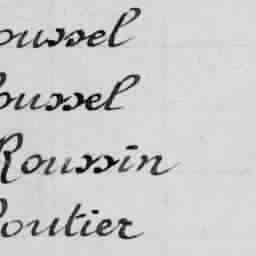 oussel
oussel
Roussin
outier